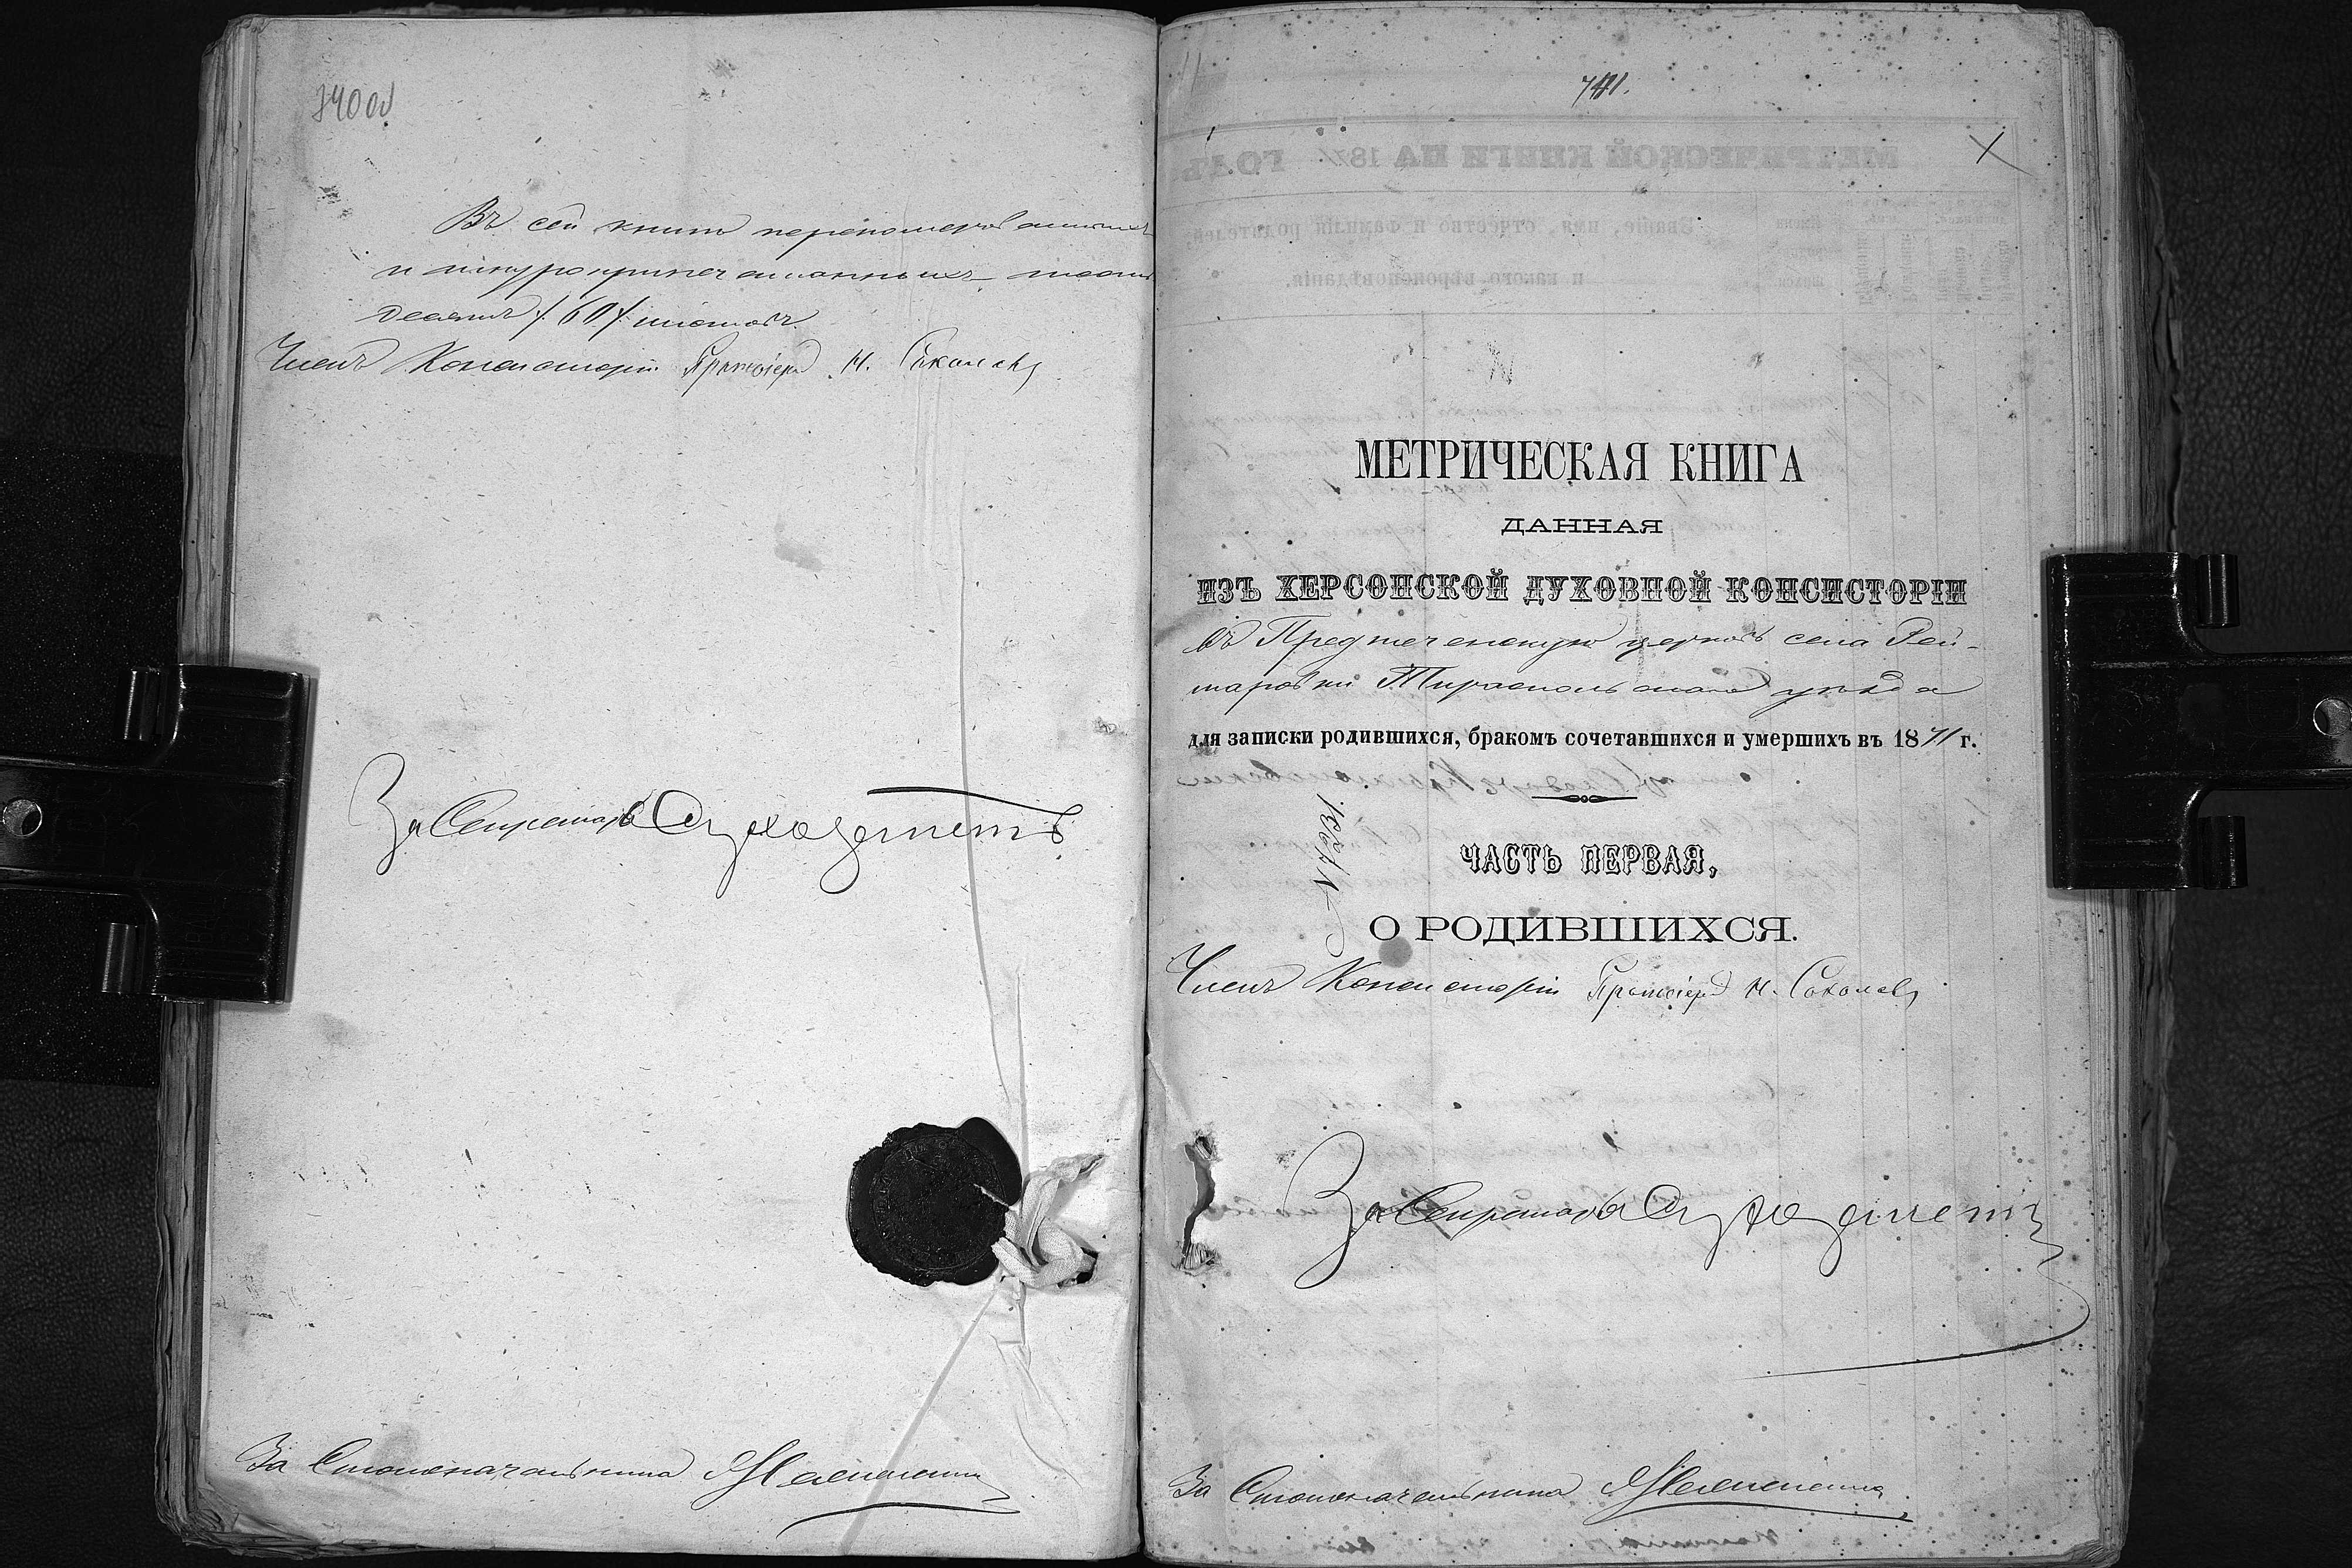 740об
Въ сей книге перенумерованныхъ
и шнуроприпечатанныхъ шесть
десятъ /60/ листовъ.
Членъ Консисторіи Протоіерей Н. Соколовъ
За Секретаря
За Столоначальника
741.
МЕТРИЧЕСКАЯ КНИГА
ДАННАЯ
ИЗЪ ХЕРСОНСКОЙ ДУХОВНОЙ КОНСИСТОРІИ
въ Предтеченскую церковь села Рей-
таровки Тираспольскаго уѣзда
для записки родившихся, бракомъ сочетавшихся и умершихъ въ 1871 г.
ЧАСТЬ ПЕРВАЯ,
О РОДИВШИХСЯ.
Членъ Консисторіи Протоіерей Н. Соколовъ
За Секретаря
За Столоначальника